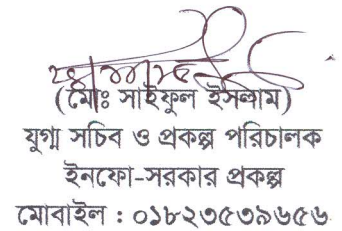 (মোঃ সাইফুল ইসলাম)
যুগ্ম সচিব ও প্রকল্প পরিচালক
ইনফো-সরকার প্রকল্প
মোবাইল : ০১৮২৩৫৩৯৬৫৬